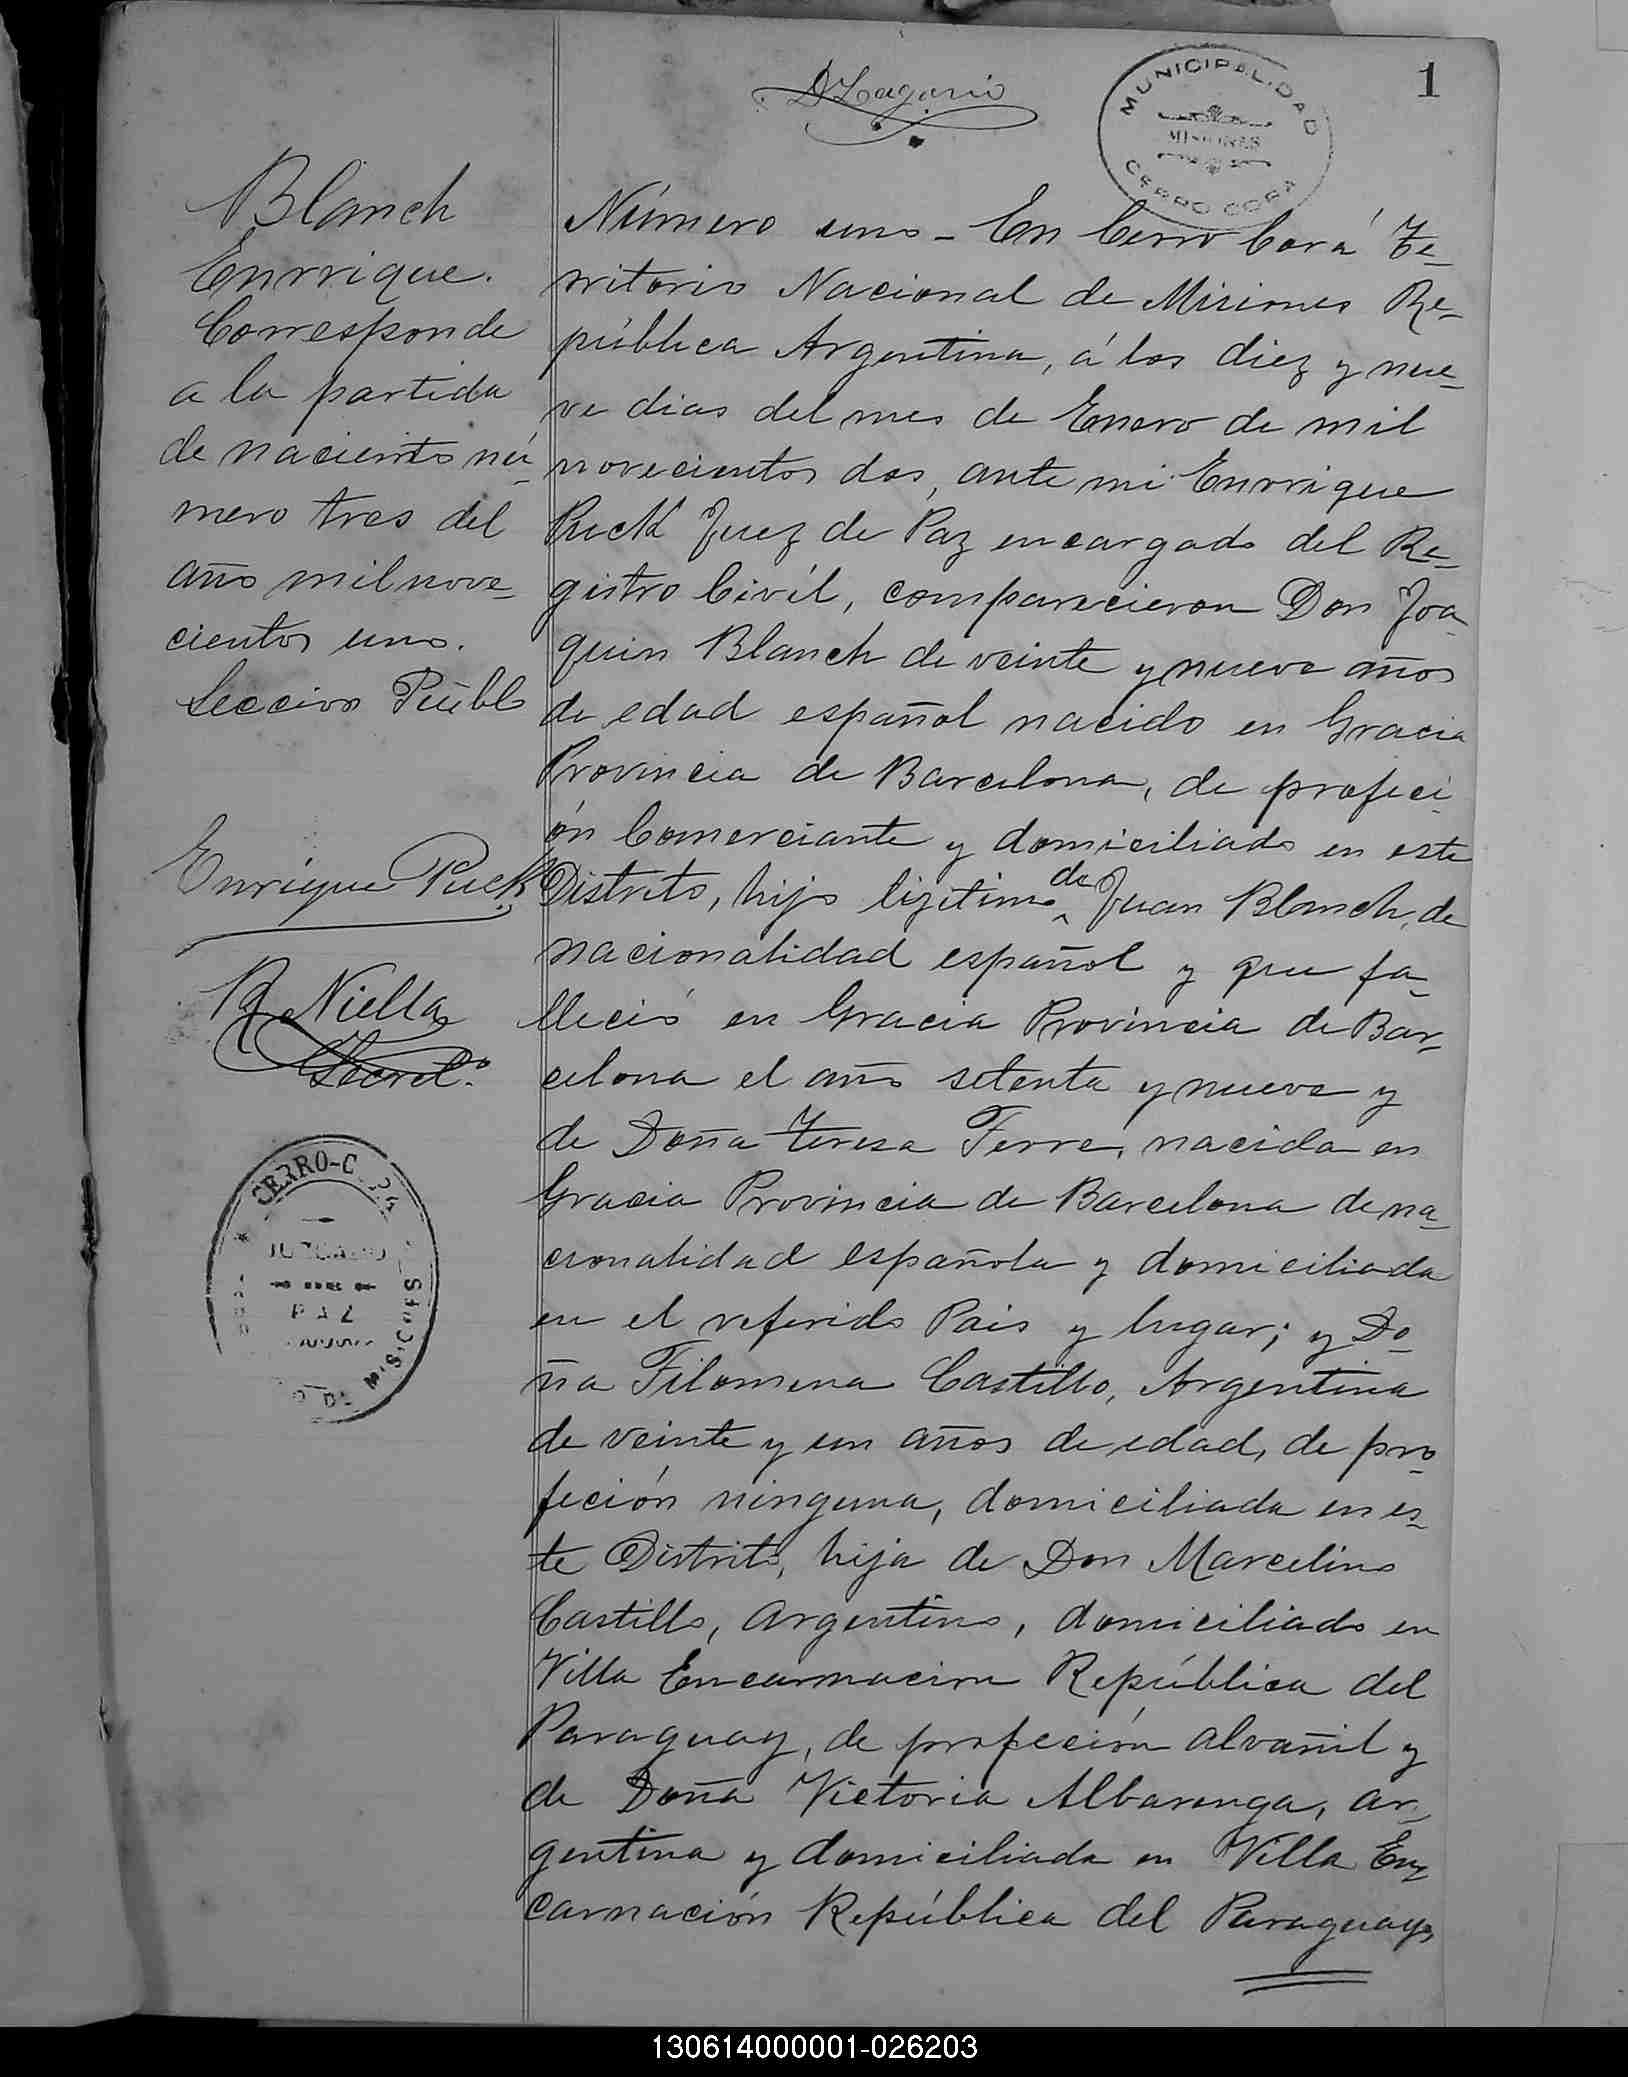 1
MUNICIPALIDAD
MISIONES
CERRO CORA
Blanch
Enrrique.
Corresponde
a la partida
de naciento nú-
mero tres del
año mil nove-
cientos uno.
Seccion Pueblo
Enrique Puck
Niella
Secret.º
CERRO-CORA
JUZGADO
PAZ
MISIONES
Número uno - En Cerro Corá Te-
rritorio Nacional de Misiones Re-
pública Argentina, á los diez y nue-
ve dias del mes de Enero de mil
novecientos dos, ante mi Enrrique
Puck Juez de Paz encargado del Re-
gistro Civíl, comparecieron Don Joa-
quin Blanch de veinte y nueve años
de edad español nacido en Gracia
Provincia de Barcelona, de profeci
ón Comerciante y domiciliado en este
Distrito, hijo ligitimo de Juan Blanch, de
nacionalidad español y que fa-
lleció en Gracia Provincia de Bar-
celona el año setenta y nueve y
de Doña Teresa Ferre, nacida en
Gracia Provincia de Barcelona de na-
cionalidad española y domiciliada
en el referido Pais y lugar; y Do-
ña Filomena Castillo, Argentina
de veinte y un años de edad, de pro-
feción ninguna, domiciliada en es-
te Distrito, hija de Don Marcelino
Castillo, argentino, domiciliado en
Villa Encarnacion República del
Paraguay, de profeción alvañil y
de Doña Victoria Albarenga, ar-
gentina y domiciliada en Villa En-
carnación República del Paraguay,
130614000001-026203